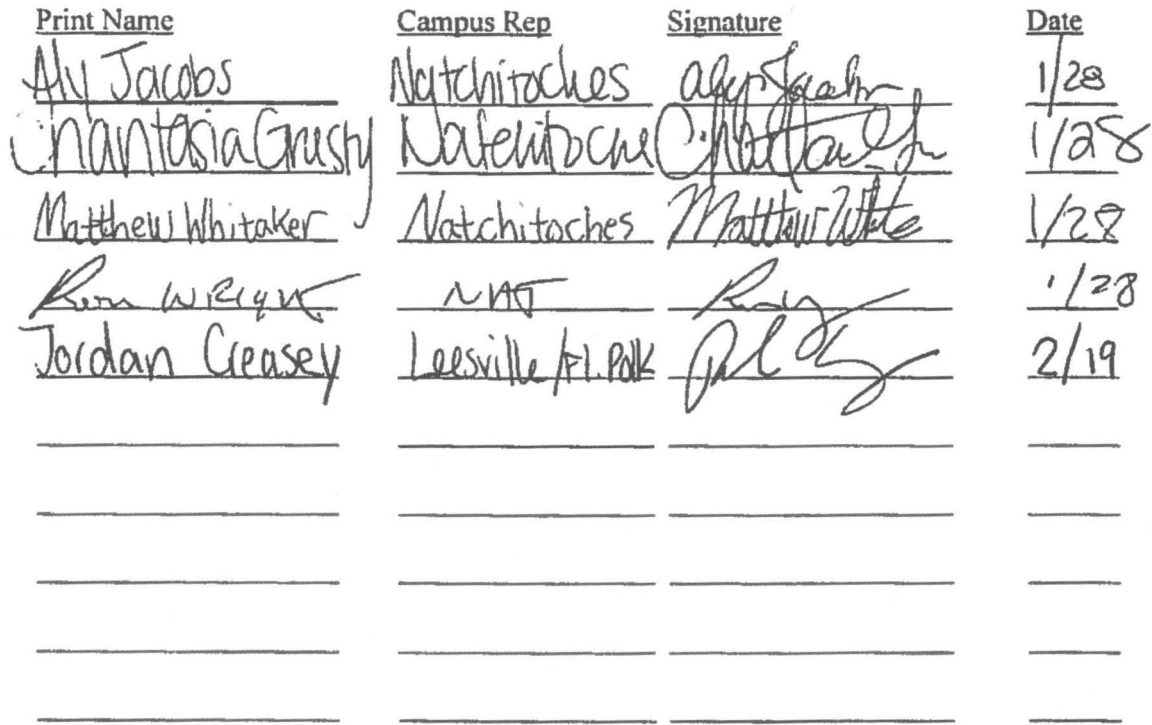 Print Name Campus Rep Signature Date
Aly Jacobs Natchitoches 1/28
Chantasia Grusty Natchitoche 1/28
Matthew Whitaker Natchitoches Matthew White 1/28
Ron Wright NAT 1/28
Jordan Creasey Leesville/Ft. Polk 2/19